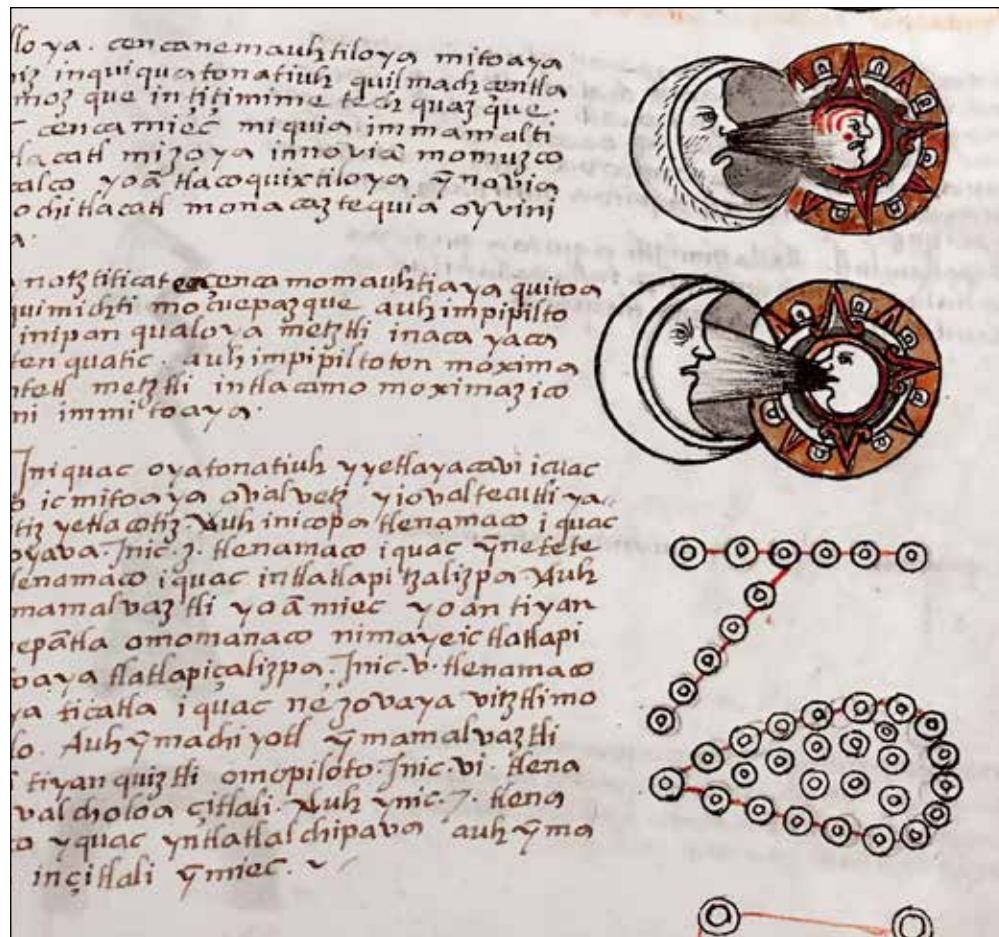 lloya. cencanemauhtiloya mitoaya
niz inquiqua tonatiuh quilmach centla
moz que intzitzimime tech quaz que.
cenca miec miquia immamalti
tlacatl mizoya innovia momuzco
calco yoã tlacoquixtiloya ỹnovia
ochitlacatl monacaztequia oyvini
a.
cenca momauhtiaya quitoa
quimichti mocuepazque auh impipilto
inipan qualoya metztli inaca yaca
ten quatic. auh impipiltoton moxima
ntetl metztli intlacamo moximaz ico
ni immitoaya.
Iniquac oyatonatiuh yyetlayacavi icuac
icmitoaya ovalvetz yiovaltecutli ya
tiz yetlacotiz. Auh inicopa tlenamaco iquac
oyava. Inic. 3. tlenamaco iquac ỹnetete
lenamaco iquac intlatlapitzalizpa. Auh
mamalvaztli yoã miec yoan tiyan
epãtla omomanaco nimaye ic tlatlapi
oaya tlatlapiçalizpa. Inic. v. tlenamaco
ya ticatla iquac neçovaya vitztli mo
lo. Auh ỹmachiyotl ỹmamalvaztli
tiyanquiztli omopiloto. Inic. vi. tlena
valcholoa çitlali. Auh ynic. 7. tlena
co yquac yntlatlalchipava auh ỹma
inçitlali ỹmiec.